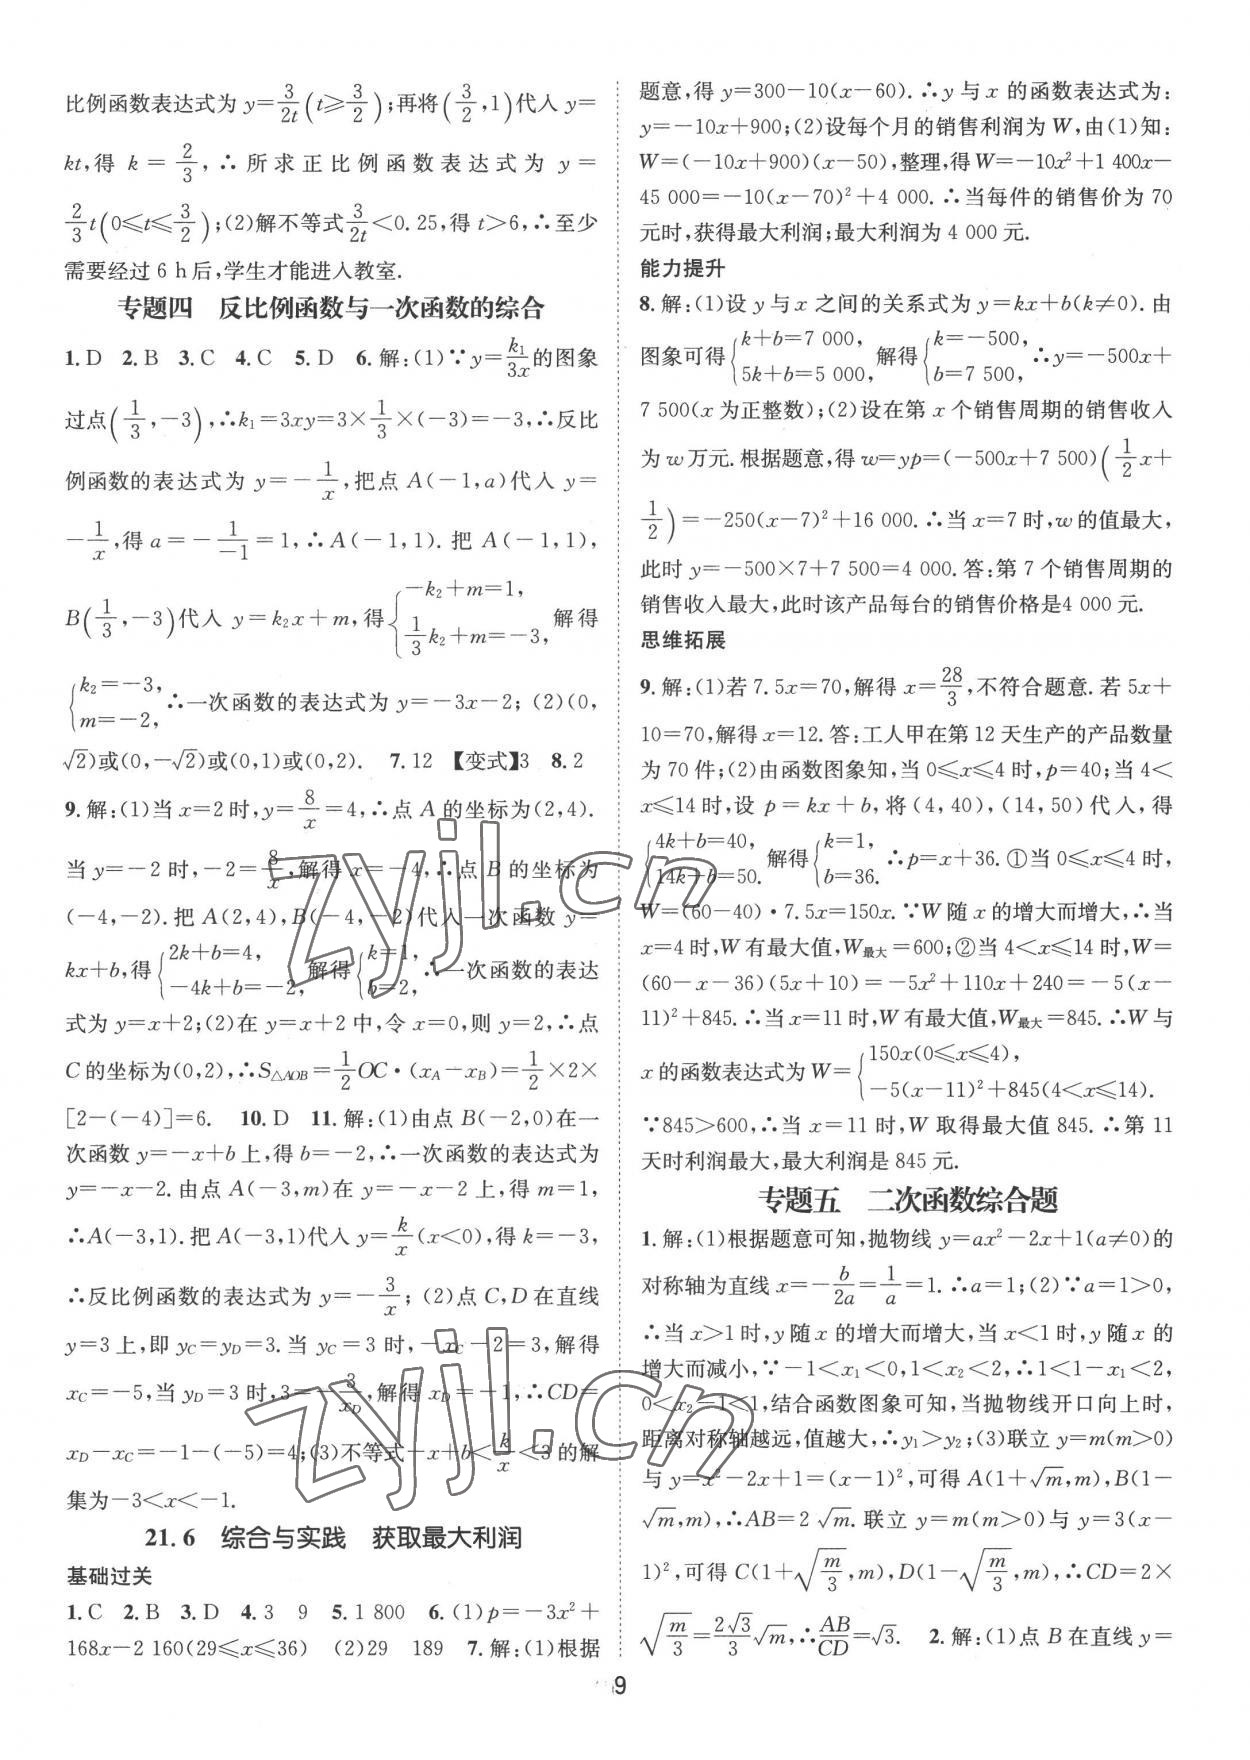 比例函数表达式为 y=3/2t(t≥3/2);再将(3/2,1)代入 y=
kt,得 k=2/3,∴所求正比例函数表达式为 y=
2/3t(0≤t≤3/2);(2)解不等式3/2t<0.25,得 t>6,∴至少
需要经过 6 h后,学生才能进入教室.
专题四 反比例函数与一次函数的综合
1.D 2.B 3.C 4.C 5.D 6.解:(1)∵y=k₁/3x的图象
过点(1/3,-3),∴k₁=3xy=3×1/3×(-3)=-3,∴反比
例函数的表达式为 y=-1/x,把点 A(-1,a)代入 y=
-1/x,得 a=-1/-1=1,∴A(-1,1).把 A(-1,1),
B(1/3,-3)代入 y=k₂x+m,得{-k₂+m=1, 1/3k₂+m=-3,解得
{k₂=-3, m=-2,∴一次函数的表达式为 y=-3x-2;(2)(0,
√2)或(0,-√2)或(0,1)或(0,2). 7.12 【变式】3 8.2
9.解:(1)当 x=2 时,y=8/x=4,∴点 A 的坐标为(2,4).
当 y=-2 时,-2=8/x,解得 x=-4,∴点 B 的坐标为
(-4,-2).把 A(2,4),B(-4,-2)代入一次函数 y=
kx+b,得{2k+b=4, -4k+b=-2,解得{k=1, b=2,∴一次函数的表达
式为 y=x+2;(2)在 y=x+2 中,令 x=0,则 y=2,∴点
C 的坐标为(0,2),∴S△AOB=1/2OC·(xA-xB)=1/2×2×
[2-(-4)]=6. 10.D 11.解:(1)由点 B(-2,0)在一
次函数 y=-x+b 上,得 b=-2,∴一次函数的表达式为
y=-x-2.由点 A(-3,m)在 y=-x-2 上,得 m=1,
∴A(-3,1).把 A(-3,1)代入 y=k/x(x<0),得 k=-3,
∴反比例函数的表达式为 y=-3/x;(2)点 C,D 在直线
y=3 上,即 yC=yD=3.当 yC=3 时,-xC-2=3,解得
xC=-5,当 yD=3 时,3=-3/xD,解得 xD=-1,∴CD=
xD-xC=-1-(-5)=4;(3)不等式-x+b<k/x<3 的解
集为-3<x<-1.
21.6 综合与实践 获取最大利润
基础过关
1.C 2.B 3.D 4.3 9 5.1 800 6.(1)p=-3x²+
168x-2 160(29≤x≤36) (2)29 189 7.解:(1)根据
题意,得 y=300-10(x-60).∴y 与 x 的函数表达式为:
y=-10x+900;(2)设每个月的销售利润为 W,由(1)知:
W=(-10x+900)(x-50),整理,得 W=-10x²+1 400x-
45 000=-10(x-70)²+4 000.∴当每件的销售价为 70
元时,获得最大利润;最大利润为 4 000 元.
能力提升
8.解:(1)设 y 与 x 之间的关系式为 y=kx+b(k≠0).由
图象可得{k+b=7 000, 5k+b=5 000,解得{k=-500, b=7 500,∴y=-500x+
7 500(x 为正整数);(2)设在第 x 个销售周期的销售收入
为 w 万元.根据题意,得 w=yp=(-500x+7 500)(1/2x+
1/2)=-250(x-7)²+16 000.∴当 x=7 时,w 的值最大,
此时 y=-500×7+7 500=4 000.答:第 7 个销售周期的
销售收入最大,此时该产品每台的销售价格是4 000 元.
思维拓展
9.解:(1)若 7.5x=70,解得 x=28/3,不符合题意.若 5x+
10=70,解得 x=12.答:工人甲在第 12 天生产的产品数量
为 70 件;(2)由函数图象知,当 0≤x≤4 时,p=40;当 4<
x≤14 时,设 p=kx+b,将(4,40),(14,50)代入,得
{4k+b=40, 14k+b=50.解得{k=1, b=36.∴p=x+36.①当 0≤x≤4 时,
W=(60-40)·7.5x=150x.∵W 随 x 的增大而增大,∴当
x=4 时,W 有最大值,W最大=600;②当 4<x≤14 时,W=
(60-x-36)(5x+10)=-5x²+110x+240=-5(x-
11)²+845.∴当 x=11 时,W 有最大值,W最大=845.∴W 与
x 的函数表达式为 W={150x(0≤x≤4), -5(x-11)²+845(4<x≤14).
∵845>600,∴当 x=11 时,W 取得最大值 845.∴第 11
天时利润最大,最大利润是 845 元.
专题五 二次函数综合题
1.解:(1)根据题意可知,抛物线 y=ax²-2x+1(a≠0)的
对称轴为直线 x=-b/2a=1/a=1.∴a=1;(2)∵a=1>0,
∴当 x>1 时,y 随 x 的增大而增大,当 x<1 时,y 随 x 的
增大而减小,∵-1<x₁<0,1<x₂<2,∴1<1-x₁<2,
0<x₂-1<1,结合函数图象可知,当抛物线开口向上时,
距离对称轴越远,值越大,∴y₁>y₂;(3)联立 y=m(m>0)
与 y=x²-2x+1=(x-1)²,可得 A(1+√m,m),B(1-
√m,m),∴AB=2√m.联立 y=m(m>0)与 y=3(x-
1)²,可得 C(1+√(m/3),m),D(1-√(m/3),m),∴CD=2×
√(m/3)=2√3/3√m,∴AB/CD=√3. 2.解:(1)点 B 在直线 y=
9
zyjl.cn
zyjl.cn